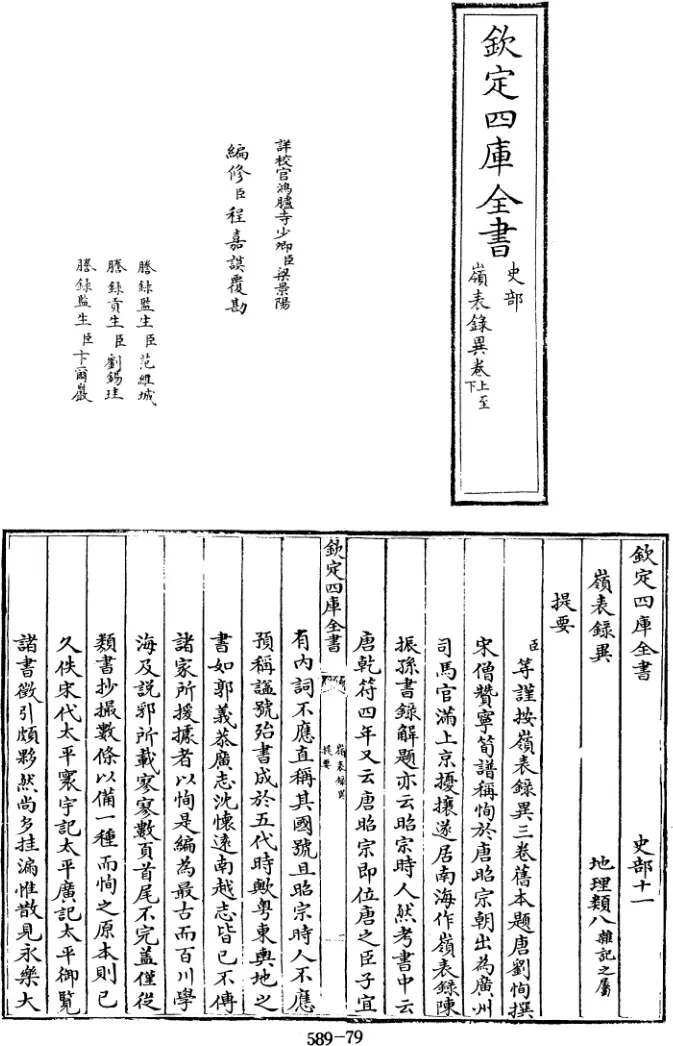 欽定四庫全書
史部
嶺表錄異卷上至下
詳校官鴻臚寺少卿臣梁景陽
編修臣程嘉謨覆勘
謄錄監生臣范維城
謄錄貢生臣劉錫珪
謄錄監生臣卞爾巖
欽定四庫全書 史部十一
嶺表錄異 地理類八雜記之屬
提要
臣等謹按嶺表錄異三卷舊本題唐劉恂撰
宋僧贊寧筍譜稱恂於唐昭宗朝出為廣州
司馬官滿上京擾攘遂居南海作嶺表錄陳
振孫書錄解題亦云昭宗時人然考書中云
唐乾符四年又云唐昭宗即位唐之臣子宜
欽定四庫全書
嶺表錄異
提要
一
有內詞不應直稱其國號且昭宗時人不應
預稱謚號殆書成於五代時歟粵東輿地之
書如郭義恭廣志沈懷遠南越志皆已不傳
諸家所援據者以恂是編為最古而百川學
海及說郛所載寥寥數頁首尾不完蓋僅從
類書抄撮數條以備一種而恂之原本則已
久佚宋代太平寰宇記太平廣記太平御覧
諸書徵引頗夥然尚多挂漏惟散見永樂大
589-79